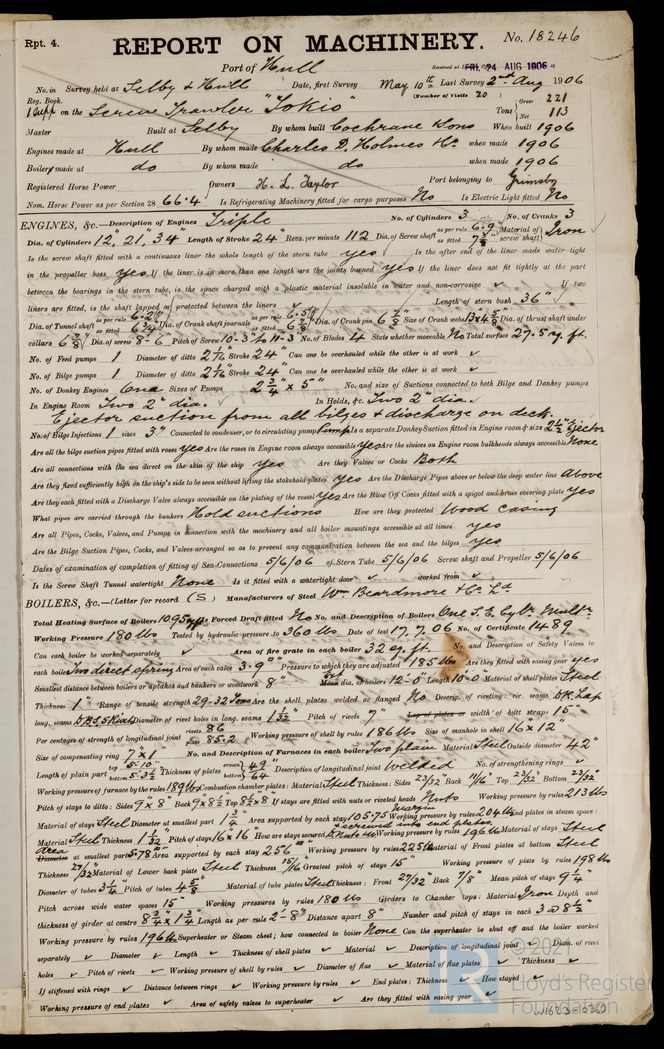 Rpt. 4. REPORT ON MACHINERY. No. 18246
Port of Hull Received at FRI. 24 AUG 1906
No. in Survey held at Selby & Hull Date, first Survey May 10th Last Survey 2nd Aug 1906
Reg. Book. (Number of Visits 20)
on the Screw Trawler "Tokio" Tons Gross 221 Net 113
Master Built at Selby By whom built Cochrane & Sons When built 1906
Engines made at Hull By whom made Charles D. Holmes & Co. when made 1906
Boilers made at do By whom made do when made 1906
Registered Horse Power Owners H. L. Taylor Port belonging to Grimsby
Nom. Horse Power as per Section 28 66.4 Is Refrigerating Machinery fitted for cargo purposes No Is Electric Light fitted No
ENGINES, &c.—Description of Engines Triple No. of Cylinders 3 No. of Cranks 3
Dia. of Cylinders 12", 21", 34" Length of Stroke 24" Revs. per minute 112 Dia. of Screw shaft as per rule 6.9" as fitted Material of screw shaft Iron
Is the screw shaft fitted with a continuous liner the whole length of the stern tube yes Is the after end of the liner made water tight
in the propeller boss yes If the liner is in more than one length are the joints burned yes If the liner does not fit tightly at the part
between the bearings in the stern tube, is the space charged with a plastic material insoluble in water and non-corrosive ✓ If two
liners are fitted, is the shaft lapped or protected between the liners ✓ Length of stern bush 36"
Dia. of Tunnel shaft as per rule 6.21" as fitted 6 3/4" Dia. of Crank shaft journals as per rule 6.5" as fitted 6 7/8" Dia. of Crank pin 6 7/8" Size of Crank webs 13x4 5/8" Dia. of thrust shaft under
collars 6 7/8" Dia. of screw 8'-6" Pitch of Screw 10-3" to 11-3" No. of Blades 4 State whether moveable No Total surface 27.5 sq. ft.
No. of Feed pumps 1 Diameter of ditto 2 7/16" Stroke 24" Can one be overhauled while the other is at work ✓
No. of Bilge pumps 1 Diameter of ditto 2 7/16" Stroke 24" Can one be overhauled while the other is at work ✓
No. of Donkey Engines One Sizes of Pumps 2 3/4" x 5" No. and size of Suctions connected to both Bilge and Donkey pumps
In Engine Room Two 2" dia. In Holds, &c. Two 2" dia.
Ejector suction from all bilges & discharge on deck.
No. of Bilge Injections 1 sizes 3" Connected to condenser, or to circulating pump Pump Is a separate Donkey Suction fitted in Engine room & size 2 1/2" Ejector
Are all the bilge suction pipes fitted with roses Yes Are the roses in Engine room always accessible Yes Are the sluices on Engine room bulkheads always accessible None
Are all connections with the sea direct on the skin of the ship yes Are they Valves or Cocks Both
Are they fixed sufficiently high on the ship's side to be seen without lifting the stokehold plates Yes Are the Discharge Pipes above or below the deep water line Above
Are they each fitted with a Discharge Valve always accessible on the plating of the vessel Yes Are the Blow Off Cocks fitted with a spigot and brass covering plate Yes
What pipes are carried through the bunkers Hold suctions How are they protected Wood casing
Are all Pipes, Cocks, Valves, and Pumps in connection with the machinery and all boiler mountings accessible at all times yes
Are the Bilge Suction Pipes, Cocks, and Valves arranged so as to prevent any communication between the sea and the bilges yes
Dates of examination of completion of fitting of Sea Connections 5/6/06 of Stern Tube 5/6/06 Screw shaft and Propeller 5/6/06
Is the Screw Shaft Tunnel watertight None Is it fitted with a watertight door ✓ worked from ✓
BOILERS, &c.—(Letter for record (S) Manufacturers of Steel Wm Beardmore & Co. Ld
Total Heating Surface of Boilers 1095 Is Forced Draft fitted No No. and Description of Boilers One S.E. Cylr Multr
Working Pressure 180 lbs Tested by hydraulic pressure to 360 lbs Date of test 17.7.06 No. of Certificate 1489
Can each boiler be worked separately ✓ Area of fire grate in each boiler 32 sq. ft. No. and Description of Safety Valves to
each boiler Two direct spring Area of each valve 3.9" Pressure to which they are adjusted 185 lbs Are they fitted with easing gear yes
Smallest distance between boilers or uptakes and bunkers or woodwork 8" Mean dia. of boilers 12-0" Length 10-0" Material of shell plates Steel
Thickness 1" Range of tensile strength 29-32 Tons Are the shell plates welded or flanged No Descrip. of riveting: cir. seams DR. Lap
long. seams Diameter of rivet holes in long. seams 1 1/32" Pitch of rivets 7" Lap of plates or width of butt straps 15"
Per centages of strength of longitudinal joint rivets 86 plate 85.2 Working pressure of shell by rules 186 lbs Size of manhole in shell 16" x 12"
Size of compensating ring 7" x 1" No. and Description of Furnaces in each boiler Two plain Material Steel Outside diameter 42"
Length of plain part top 5-10" bottom 5-3 1/2" Thickness of plates crown 49/64" bottom Description of longitudinal joint Welded No. of strengthening rings ✓
Working pressure of furnace by the rules 189 lbs Combustion chamber plates: Material Steel Thickness: Sides 23/32" Back 11/16" Top 23/32" Bottom 23/32"
Pitch of stays to ditto: Sides 9" x 8" Back 9" x 8 1/2" Top 8 1/2" x 8" If stays are fitted with nuts or riveted heads Nuts Working pressure by rules 213 lbs
Material of stays Steel Diameter at smallest part 1 3/4" Area supported by each stay 105.75 Working pressure by rules 204 lbs End plates in steam space:
Material Steel Thickness 1 1/32" Pitch of stays 16" x 16" How are stays secured Working pressure by rules 196 lbs Material of stays Steel
Area Diameter at smallest part 5.78" Area supported by each stay 256" Working pressure by rules 225 lbs Material of Front plates at bottom Steel
Thickness 27/32" Material of Lower back plate Steel Thickness 15/16" Greatest pitch of stays 15" Working pressure of plate by rules 198 lbs
Diameter of tubes 3 1/4" Pitch of tubes 4 5/8" Material of tube plates Steel Thickness: Front 27/32" Back 7/8" Mean pitch of stays 9 1/4"
Pitch across wide water spaces 15" Working pressures by rules 180 lbs Girders to Chamber tops: Material Iron Depth and
thickness of girder at centre 8 3/4" x 1 3/4" Length as per rule 2'-8" Distance apart 8" Number and pitch of stays in each 3 @ 8 1/2"
Working pressure by rules 196 lbs Superheater or Steam chest; how connected to boiler None Can the superheater be shut off and the boiler worked
separately ✓ Diameter ✓ Length ✓ Thickness of shell plates ✓ Material ✓ Description of longitudinal joint ✓ Diam. of rivet
holes ✓ Pitch of rivets ✓ Working pressure of shell by rules ✓ Diameter of flue ✓ Material of flue plates ✓ Thickness ✓
If stiffened with rings ✓ Distance between rings ✓ Working pressure by rules ✓ End plates: Thickness ✓ How stayed ✓
Working pressure of end plates ✓ Area of safety valves to superheater ✓ Are they fitted with easing gear ✓
© 2021
Lloyd's Register
Foundation
W1623-0360